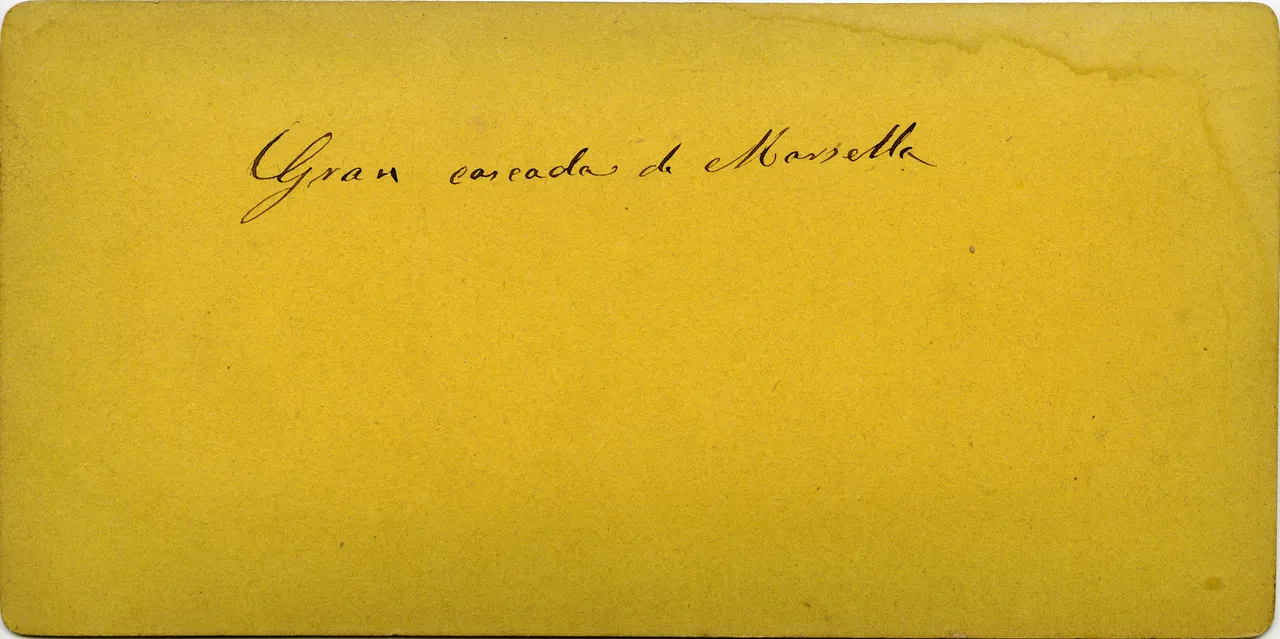 Gran cascada de Marsella